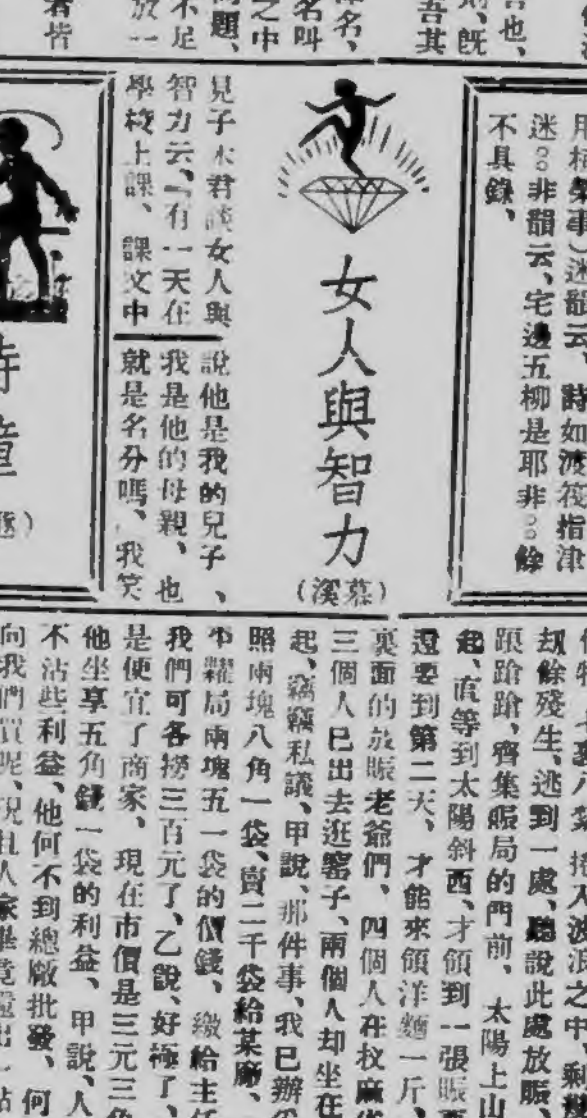 也、
則、旣
吾其
名、
名叫
之中
問題、
不足
放一
者皆
迷。。非韻云、宅邊五柳是耶非。。餘
不具錄、
女人與智力
(慕溪)
見子木君談女人與
智力云、「有一天在
學校上課、課文中
說他是我的兒子、
我是他的母親、也
就是名分嗎、我笑
詩童
刼餘殘生、逃到一處、聽說此處放賬
踉蹌蹌、齊集賬局的門前、太陽上山
起、直等到太陽斜西、才領到一張賬
還要到第二天、才能來領洋麵一斤、
裏面的放賬老爺們、四個人在杈麻
三個人已出去逛窰子、兩個人却坐在
起、竊竊私議、甲說、那件事、我已辦
照兩塊八角一袋、賣二千袋給某廠、
糶局兩塊五一袋的價錢、繳給主任
我們可各撈三百元了、乙說、好極了、
是便宜了商家、現在市價是三元三角
他坐享五角錢一袋的利益、甲說、人
不沾些利益、他何不到總廠批發、何
向我們買呢、況且人家畢竟還出一點